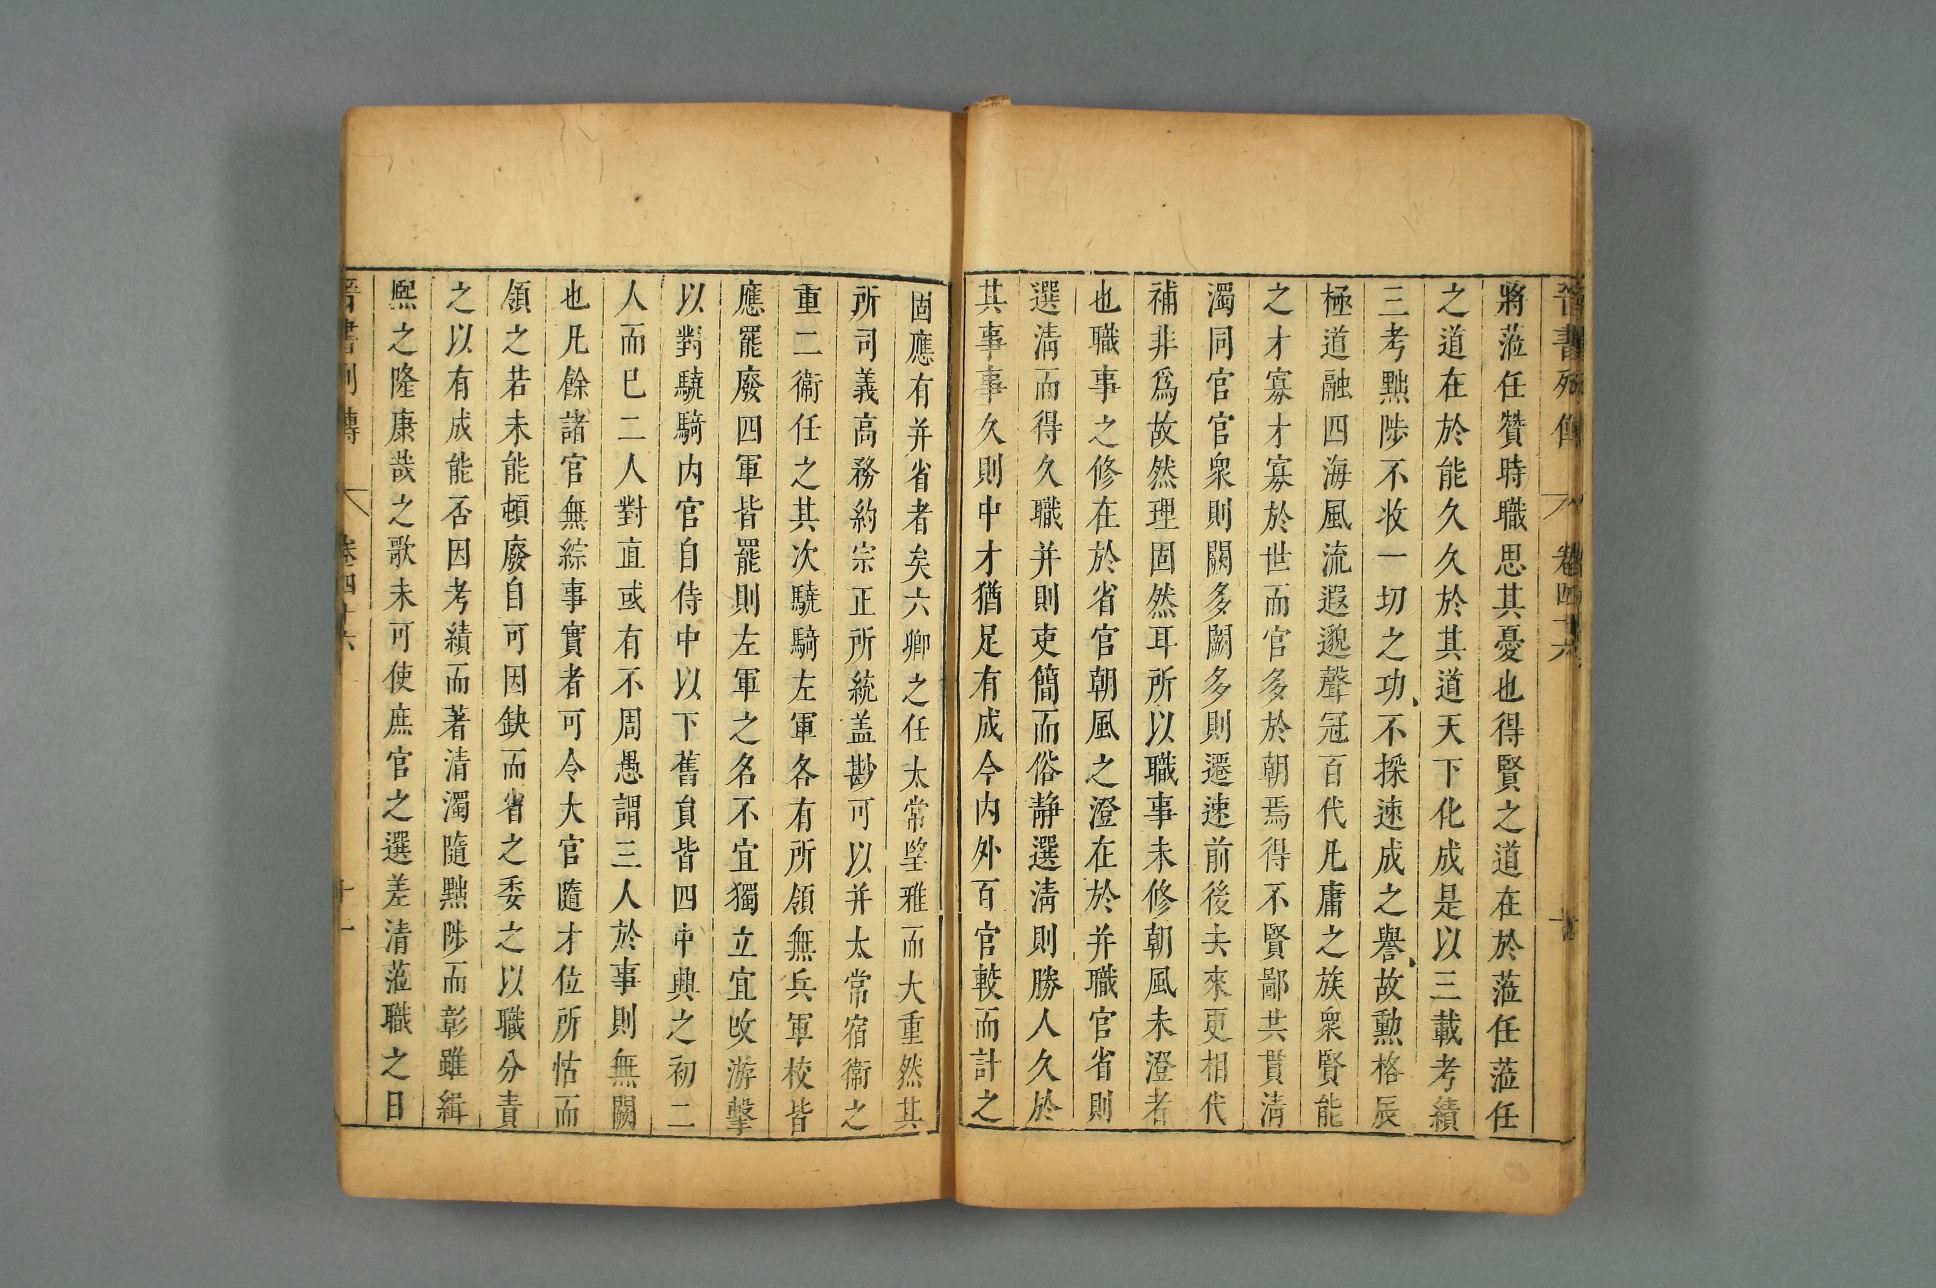 晉書列傳 卷四十六
將蒞任贊時職思其憂也得賢之道在於蒞任蒞任
之道在於能久久於其道天下化成是以三載考績
三考黜陟不收一切之功不採速成之譽故勲格辰
極道融四海風流遐邈聲冠百代凡庸之族衆賢能
之才寡才寡於世而官多於朝焉得不賢鄙共貫清
濁同官官衆則闕多闕多則遷速前後去來更相代
補非爲故然理固然耳所以職事未修朝風未澄者
也職事之修在於省官朝風之澄在於并職官省則
選清而得久職并則吏簡而俗靜選清則勝人久於
其事事久則中才猶足有成今内外百官較而計之
固應有并省者矣六卿之任太常望雅而大重然其
所司義高務約宗正所統盖尠可以并太常宿衛之
重二衛任之其次驍騎左軍各有所領無兵軍校皆
應罷廢四軍皆罷則左軍之名不宜獨立宜攺游擊
以對驍騎内官自侍中以下舊負皆四中興之初二
人而巳二人對直或有不周愚謂三人於事則無闕
也凡餘諸官無綜事實者可令大官隨才位所怙而
領之若未能頓廢自可因缺而省之委之以職分責
之以有成能否因考績而著清濁隨黜陟而彰雖緝
熙之隆康哉之歌未可使庶官之選差清蒞職之日
晉書列傳 卷四十六 十一